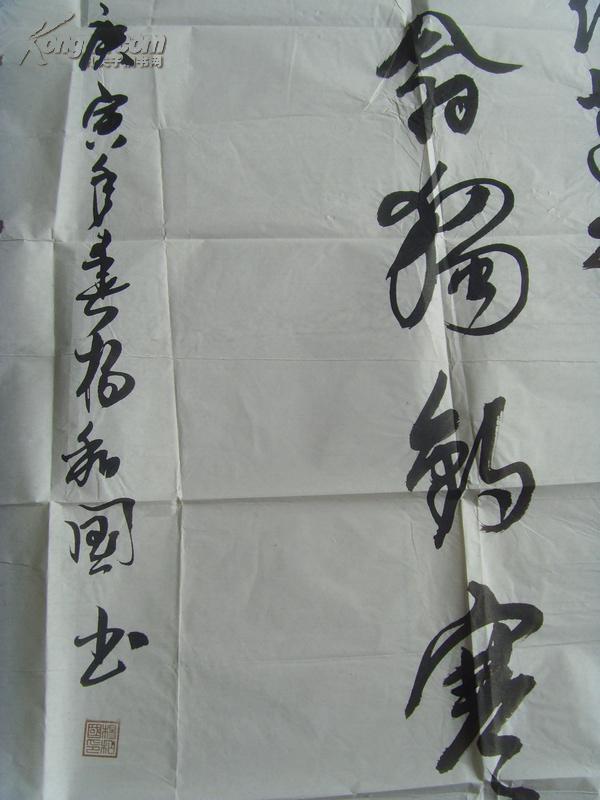 翁獨釣寒
庚寅年春楊和國书
Kongfz.com
孔夫子旧书网